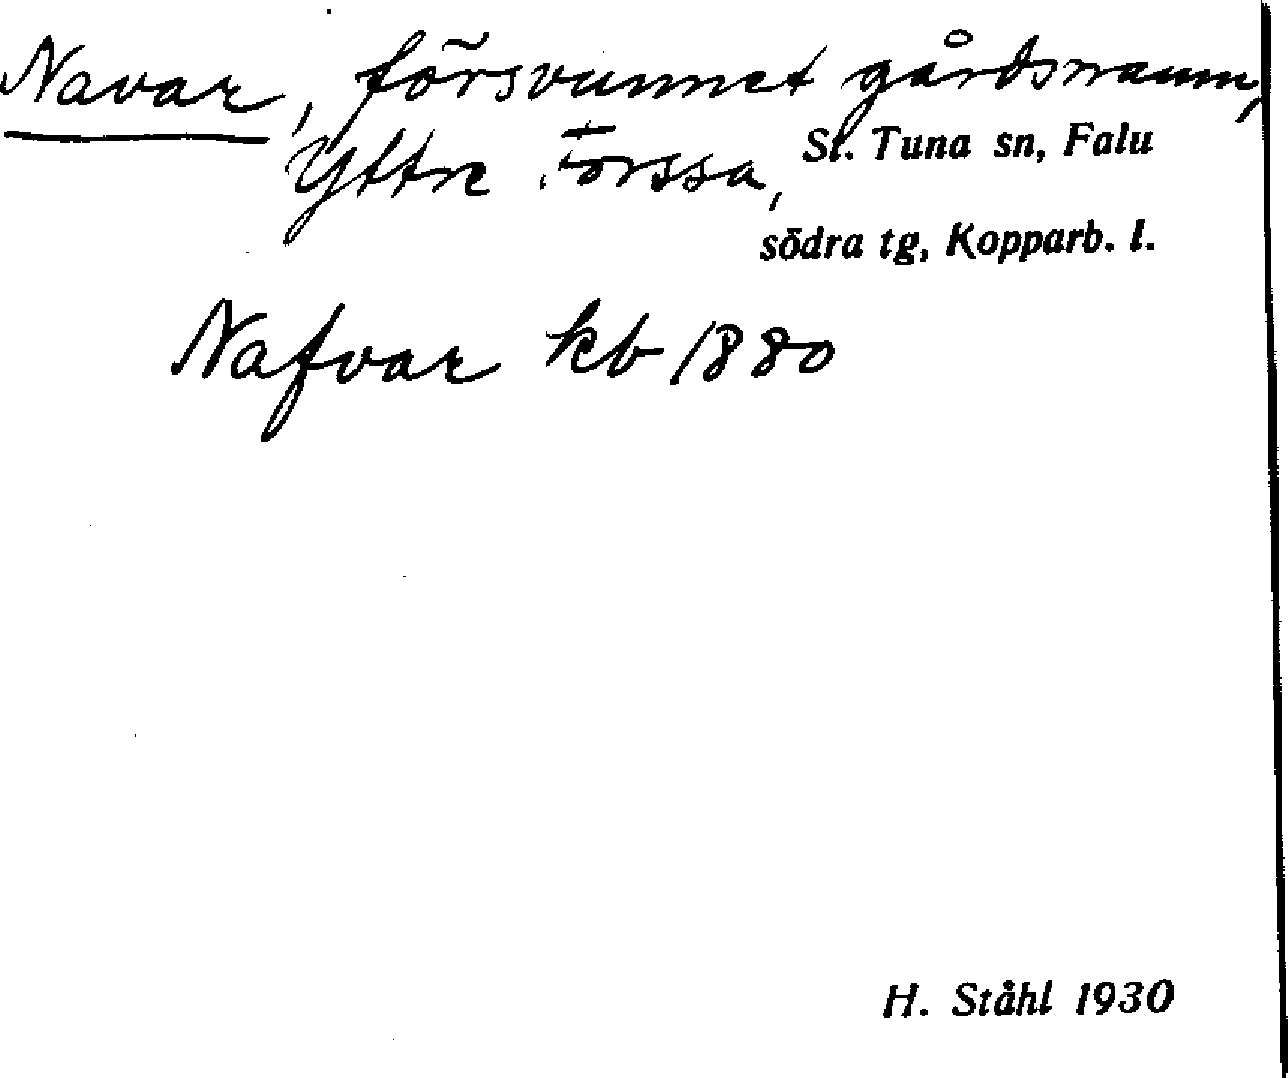 Navar, försvunnet gårdsnamn,
Yttre Forssa, St. Tuna sn, Falu
södra tg, Kopparb. l.
Nafvar kb 1880
H. Ståhl 1930